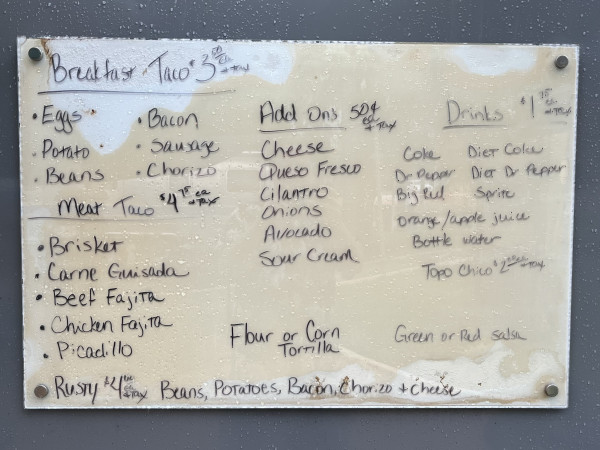 Breakfast Taco $3.00 ea + tax
• Eggs
• Potato
• Beans
• Bacon
• Sausage
• Chorizo
Meat Taco $4.75 ea + tax
• Brisket
• Carne Guisada
• Beef Fajita
• Chicken Fajita
• Picadillo
Add Ons 50¢ ea + Tax
Cheese
Queso Fresco
Cilantro
Onions
Avocado
Sour Cream
Drinks $1.75 ea + Tax
Coke Diet Coke
Dr Pepper Diet Dr Pepper
Big Red Sprite
orange/apple juice
Bottle water
Topo Chico $2.00 ea + tax
Flour or Corn
Tortilla
Green or Red Salsa
Rusty $4 + tax Beans, Potatoes, Bacon, Chorizo + cheese